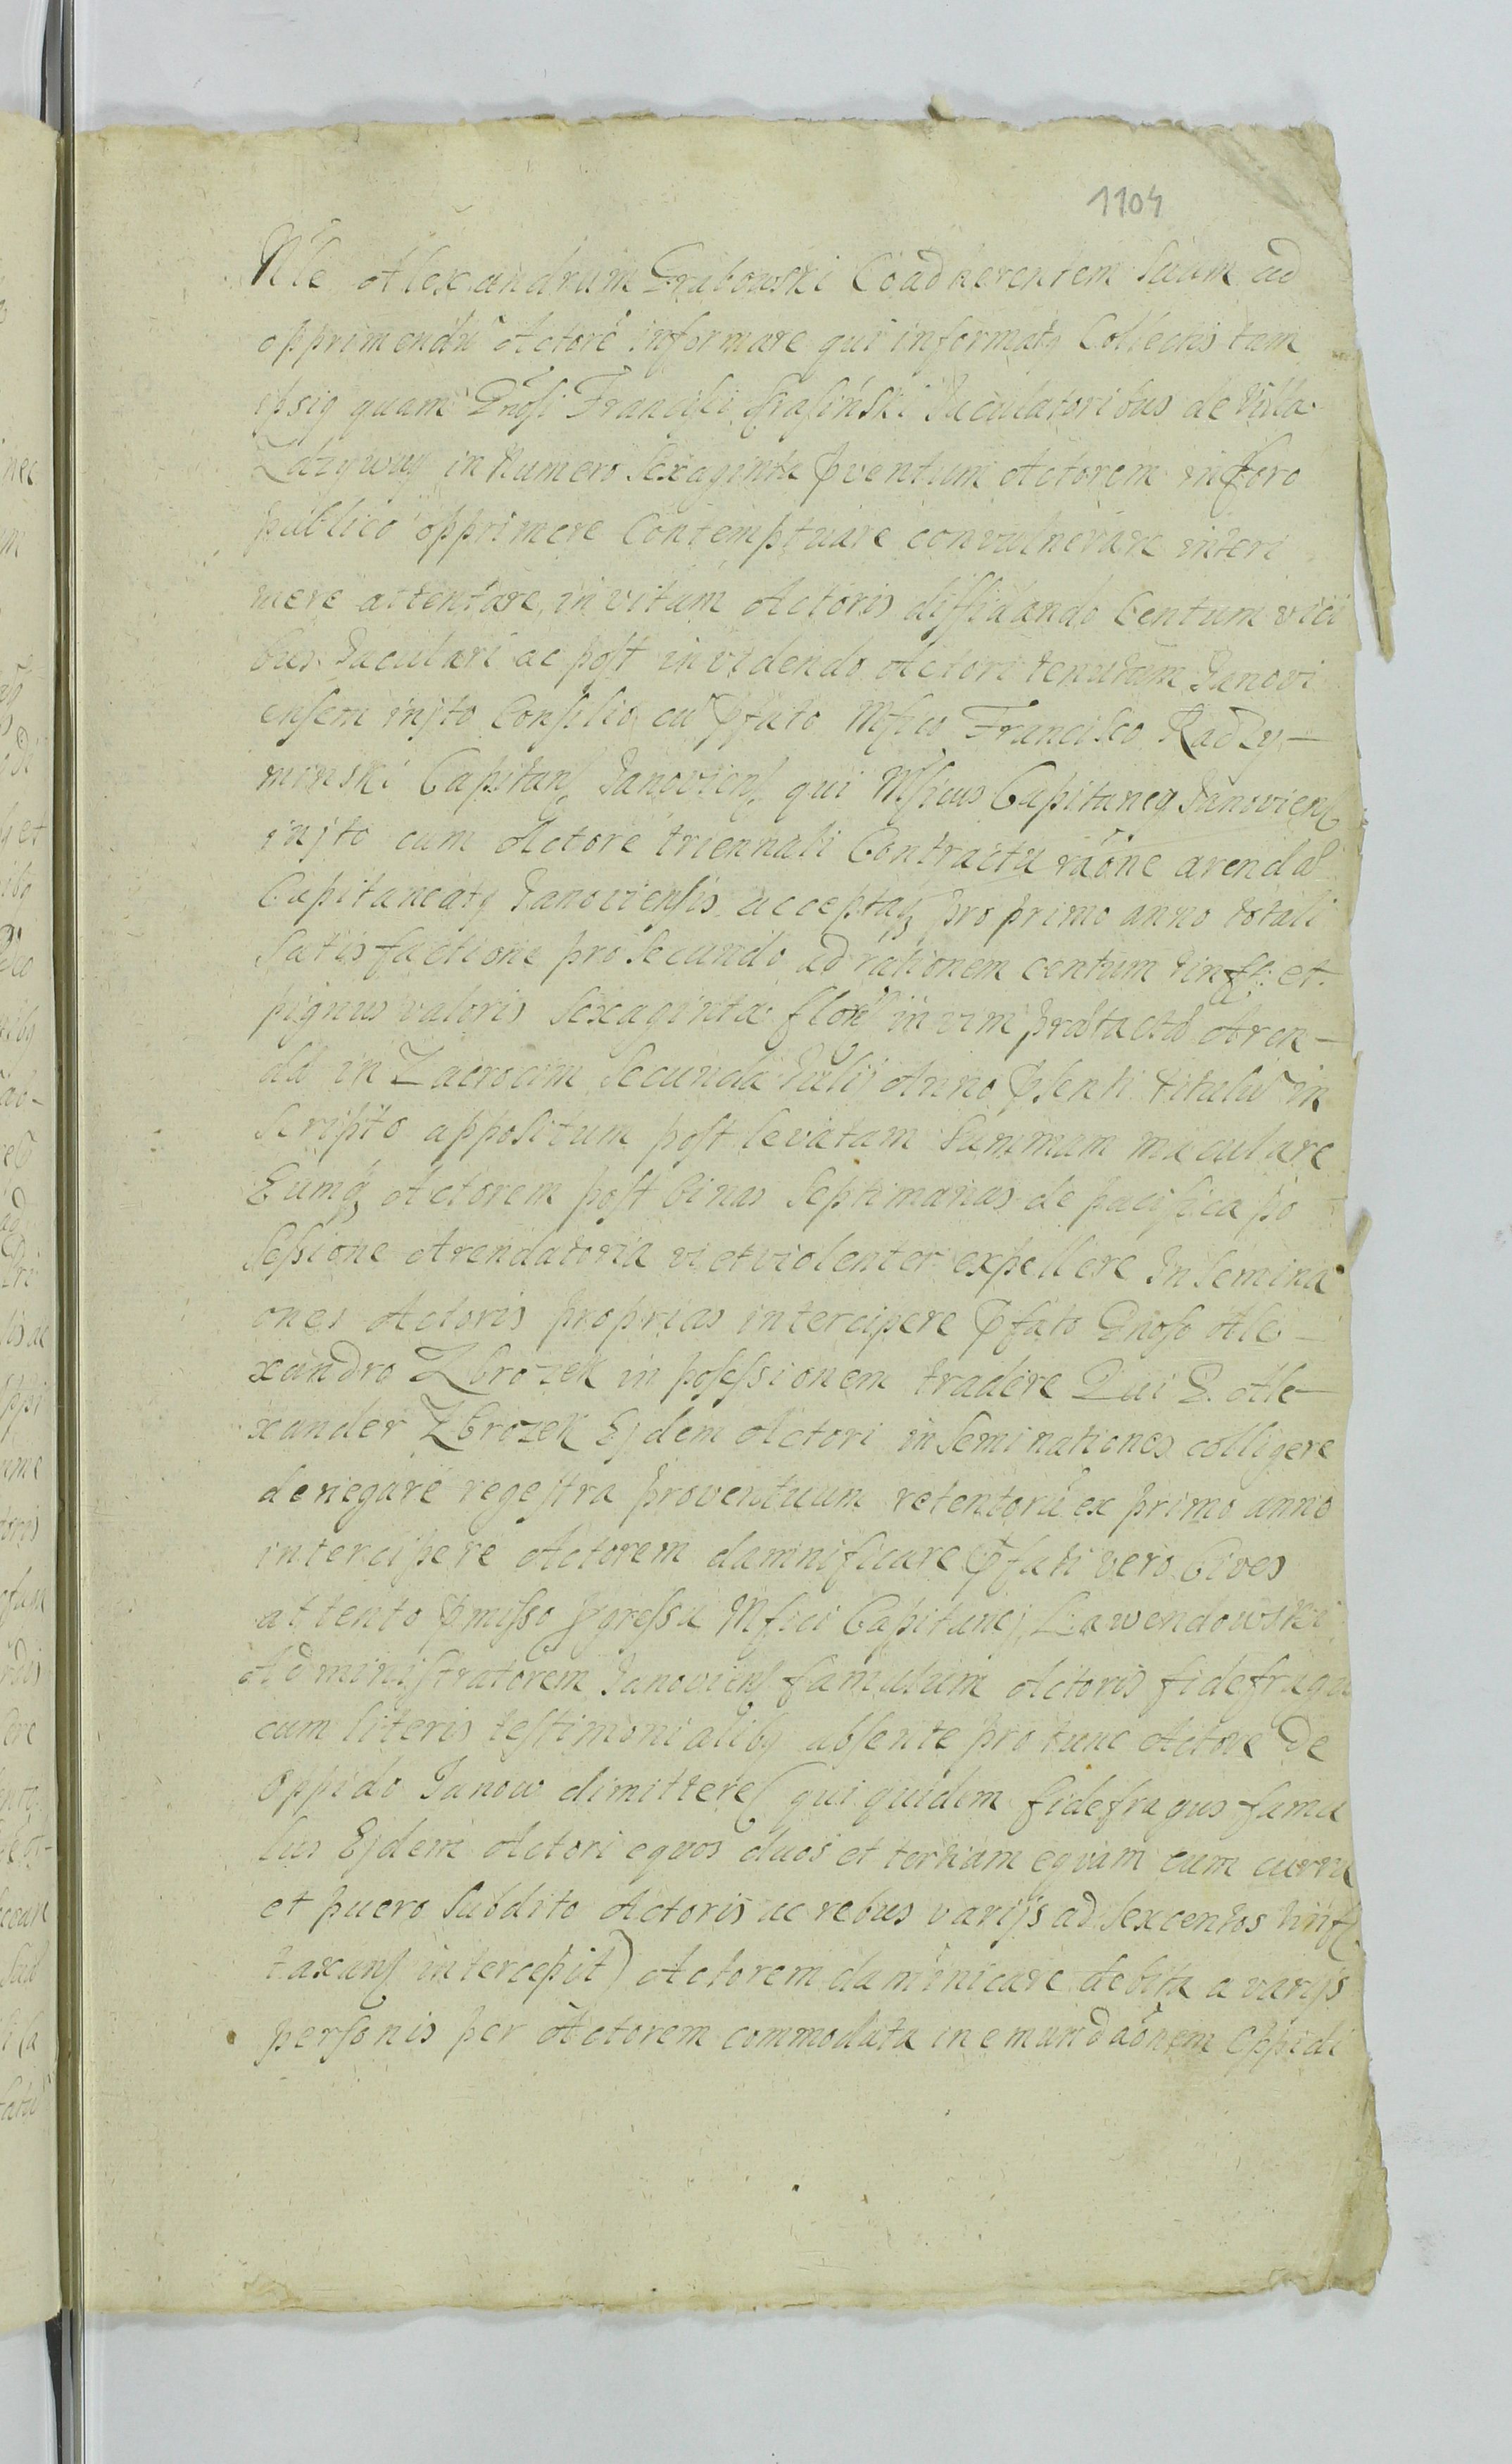 1104
Nle Alexandrum Grabowski Coadherentem suum ad
opprimendũ Actorẽ informare qui informatq Collectis tam
ipsiq quam Gnosi Francisci Krasinski Jaculatoribus de Villa
Zazywny in numero sexaginta pventum Actorem in foro
publico opprimere Contemptuare convulnerare interi
mere attentare, in vitam Actoris diffidando Centum vici
bus Jaculari ac post invidendo Actori tenutam Janovi
ensem injto Consilio cũ pfato Mfico Francisco Radzy-
minski Capitan Janovien qui Mficus Capitaneq Janovien
injto cum Actore triennali Contractu raõne arenda
Capitaneatq Janoviensis acceptaq pro primo anno totali
satisfactione pro secundo ad rationem centum tinff: et
pignus valoris sexaginta flor in vim prætacta Aren-
da in Zacrocim secunda Julij Anno psenti titulũ in
scripto appositum post levatam summam maculare
Eumq Actorem post binas septimanas de pacifica po
sessione Arendatoria vi et violenter expellere Insemina
ones Actoris proprias intercipere pfato Gnoso Ale-
xandro Zbrozek in posessionem tradere Qui G. Ale-
xander Zbrozek Ejdem Actori inseminationes colligere
denegare regestra proventuum retentorũ ex primo anno
intercipere Actorem damnificare pfati vero Cives
attento pmisso pgressu Mfici Capitanej Lawendowski
Administratorem Janovien famulum Actoris fidefragu
cum literis testimonialibq absente pro tunc Actore de
Oppido Janow dimittere (qui quidem fidefragus famu
lus Ejdem Actori equos duos et tertiam equam cum curru
et puero subdito Actoris ac rebus varijs ad sexcentos tinf
taxans intercepit) Actorem daminicare debita a varijs
personis per Actorem commodata in emundaõnem Oppidi